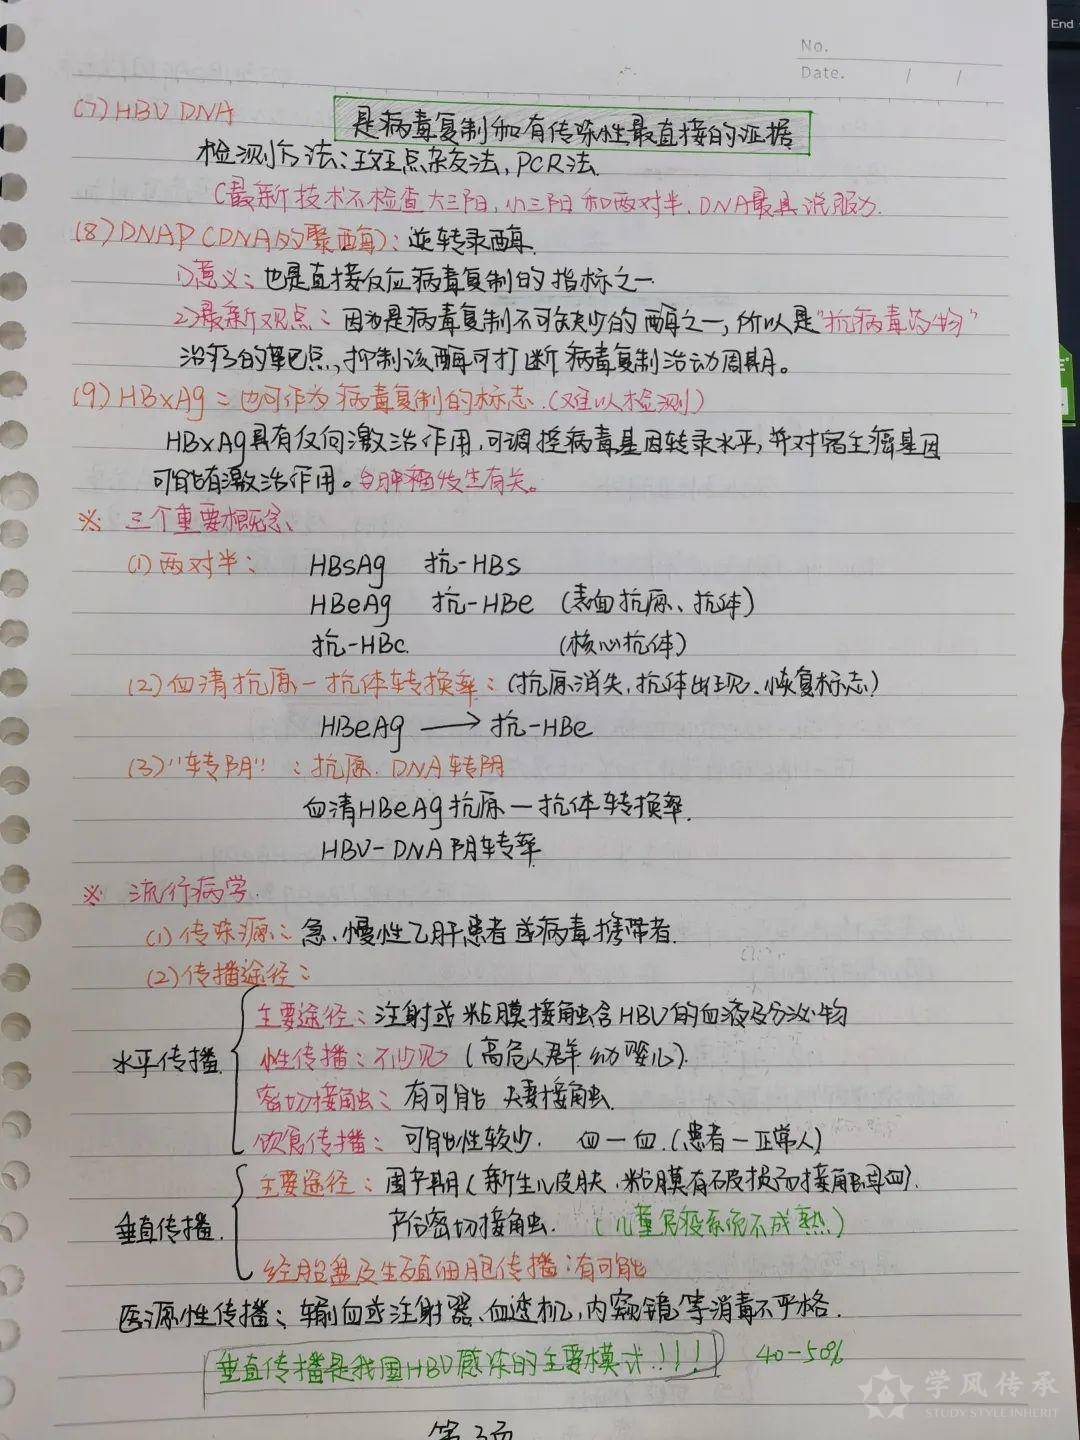 End
No.
Date.
(7) HBV DNA
是病毒复制和有传染性最直接的证据
检测方法：斑点杂交法，PCR法.
(最新技术不检查大三阳，小三阳和两对半，DNA最具说服力.
(8) DNAP (DNA的聚酶)：逆转录酶.
1)意义：也是直接反应病毒复制的指标之一
2)最新观点：因为是病毒复制不可缺少的酶之一，所以是"抗病毒药物"
治疗的靶点，抑制该酶可打断病毒复制活动周期。
(9) HBxAg：也可作为病毒复制的标志.(难以检测)
HBxAg具有反向激活作用，可调控病毒基因转录水平，并对宿主癌基因
可能有激活作用。与肿瘤发生有关。
※ 三个重要概念、
(1) 两对半： HBsAg 抗-HBs
HBeAg 抗-HBe (表面抗原、抗体)
抗-HBc. (核心抗体)
(2) 血清抗原—抗体转换率：(抗原消失，抗体出现、恢复标志)
HBeAg → 抗-HBe
(3) "转阴"：抗原、DNA转阴
血清HBeAg抗原—抗体转换率.
HBV-DNA阴转率
※ 流行病学.
(1) 传染源：急、慢性乙肝患者 病毒携带者.
(2) 传播途径：
主要途径：注射或粘膜接触含HBV的血液及分泌物
水平传播.
性传播：不少见 (高危人群 幼婴儿).
密切接触：有可能 夫妻接触.
饮食传播：可能性较少. 血—血.(患者—正常人)
主要途径：围产期(新生儿皮肤、粘膜有破损而接触母血).
垂直传播.
产后密切接触. (儿童免疫系统不成熟)
经胎盘及生殖细胞传播：有可能
医源性传播：输血或注射器、血透机、内窥镜等消毒不严格.
垂直传播是我国HBV感染的主要模式!!! 40-50%
第3页
学风传承
STUDY STYLE INHERIT